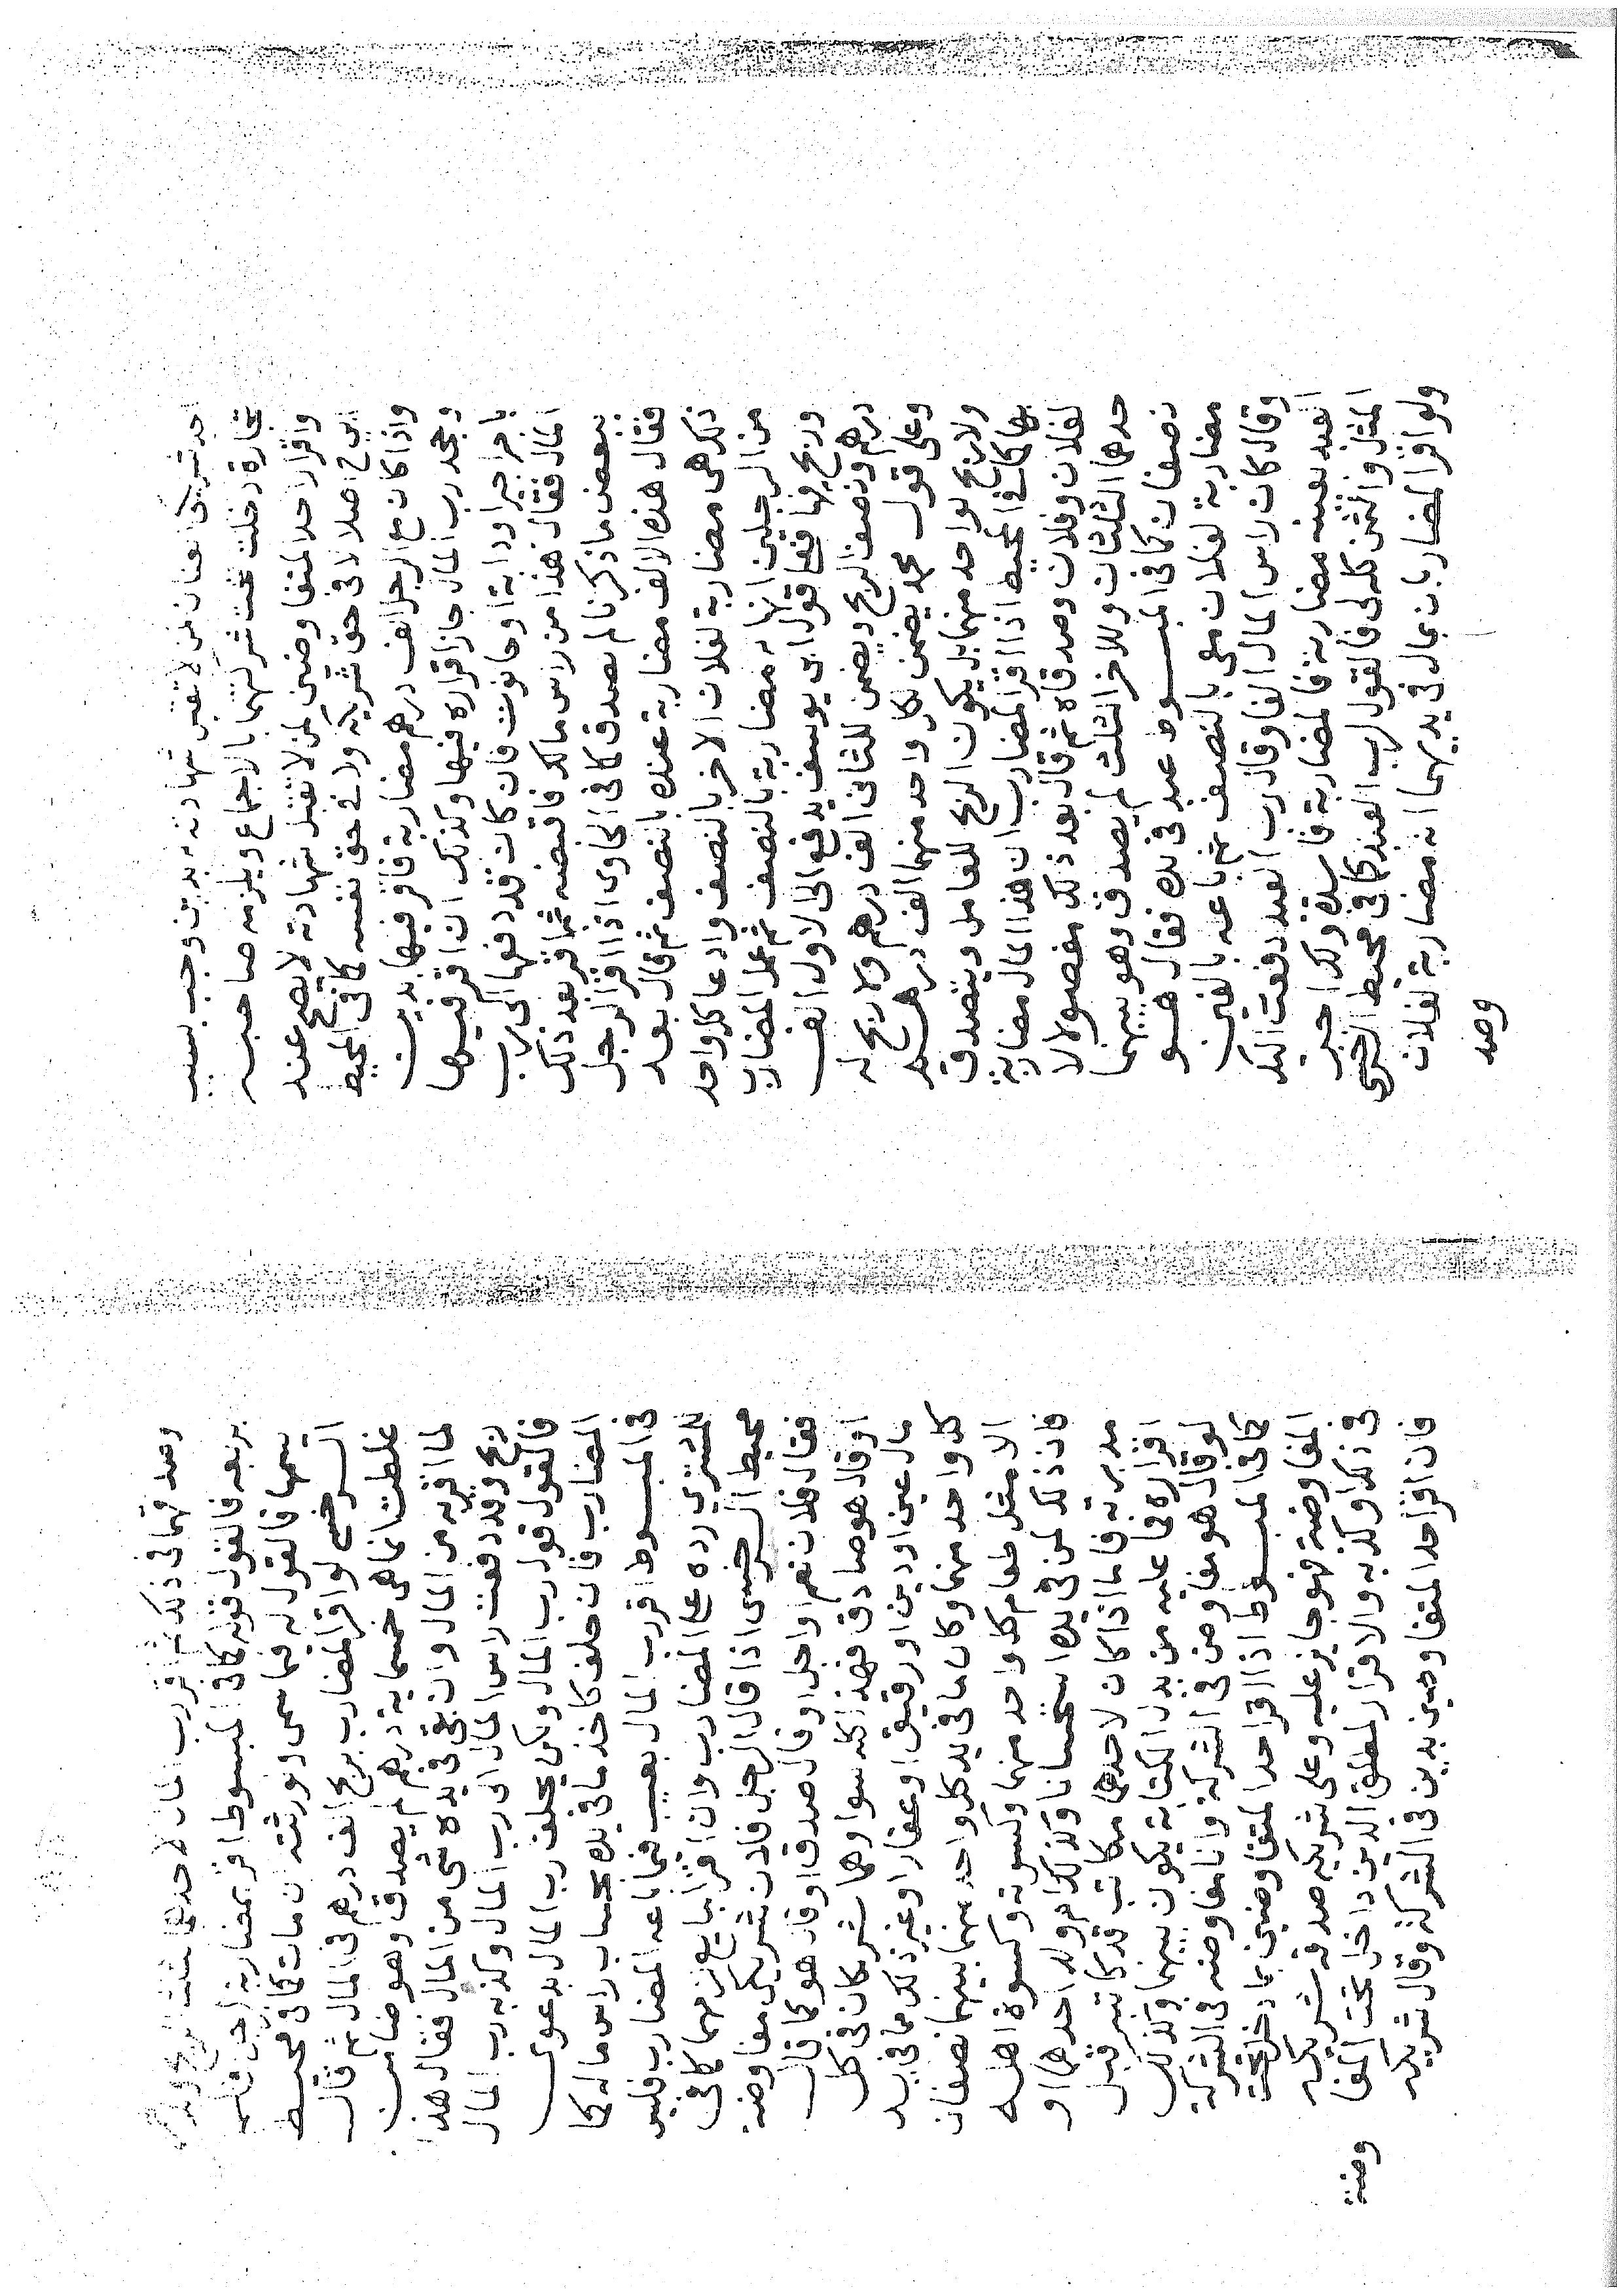 احد شريكى العنان لمن لا تقبل شهادته له بدين وجب بسبب
تجارة دخلت تحت شركتهما بالاجماع ويلزمه صاحبه
واقرار احد المتفاوضين لمن لا تقبل شهادته لا يصح عند
ابى ح اصلا لا فى حق شريكه ولا فى حق نفسه كما فى المحيط
واذا كان مع الرجل الف درهم مضاربة فاقر فيها بدين
وجحد رب المال جاز اقراره فيها وكذلك ان اقر فيها
باجر اجير او دابة او حانوت فان كان قد دفعها الى رب
المال فقال هذا من راس مالك فاقبضه ثم اقر بعد ذلك
ببعض ما ذكرنا لم يصدق كما فى الحاوى اذا اقر الرجل
فقال هذه الالف مضاربة عنده بالنصف ثم قال بعد
ذكرهى مضاربة لفلان الاخر بالنصف وادعا كل واحد
من الرجلين انها له مضاربة بالنصف ثم عمل المضارب
وربح فيها فعلى قول ابى يوسف يدفع الى الاول الف
درهم ونصف الربح ويضمن للثانى الف درهم ولا ربح له
وعلى قول محمد يضمن لكل واحد منهما الف درهم
ولا ربح لواحد منهما بل يكون الربح للعامل ويتصدق
بها كما فى المحيط اذا اقر المضارب ان هذا المال مضاربة
لفلان وفلان وصدقاه ثم قال بعد ذلك مفصولا لا
حدهما الثلثان وللاخر الثلث لم يصدق وهو بينهما
نصفان كما فى المبسوط عبد فى يده فقال هو
مضاربة لفلان معى بالنصف ثم باعه بالفين
وقال كان راس المال الفا وقال رب العبد دفعت اليك
العبد بعينه مضاربة فالمضاربة فاسدة ولك اجر
المثل والثمن كله لى فالقول لرب العبد كما فى محيط السرخسى
ولو اقر المضاربان بمال فى يديهما انه مضاربة لفلان
وصد
وصدقهما فى ذلك ثم اقر رب المال لاحدهما بثلث الربح وللاخر
بربعه فالقول قوله كما فى المبسوط اقر بمضاربة لرجل ولم
يسمها فالقول له فيما سمى ولورثته ان مات كما فى محيط
السرخسى لو اقر المضارب بربح الف درهم فى المال ثم قال
غلطت انما هى خمسماية درهم لم يصدق وهو ضامن
لما اقر به من المال وان بقى فى يده شى من المال فقال هذا
ربح وقد دفعت راس المال الى رب المال وكذبه رب المال
فالقول قول رب المال ولكن يحلف رب المال بدعوى
المضارب فان حلف كاخذ ما فى يده بحساب راس ماله كما
فى المبسوط اقر رب المال بعيب فيما باعه المضارب فليس
للمشترى رده على المضارب وان اقر البايع لزمهما كما فى
محيط السرخسى اذا قال الرجل فلان شريكى مفاوضة
فقال فلان نعم او اجل او قال صدق او قال هو كما قال
او قال هو صادق فهذا كله سوا وهما شريكان فى كل
مال عين او دين او رقيق او عقار او غير ذلك مما فى يد
كل واحد منهما وكان ما فى يد كل واحد منهما بينهما نصفان
الا مثل طعام كل واحد منهما وكسوته وكسوة اهله
فان ذلك لمن فى يده استحسانا وكذلك ام ولد احدهما او
مدبرته فاما اذا كان لاحدهما مكاتب قد كاتبه قبل
اقراره فما عليه من بدل الكتابة يكون بينهما وكذلك
لو قال هو مفاوضى فى الشركة وانا مفاوضه فى الشركة
كما فى المبسوط اذا اقر احد المتفاوضين بما دخل تحت
المفاوضة فهو جايز عليه وعلى شريكه صدقه شريكه
فى ذلك او كذبه والاقرار لمطلق الدين داخل تحت المفا
وضة
فان اقر احد المتفاوضين بدين فى الشركة وقال شريكه